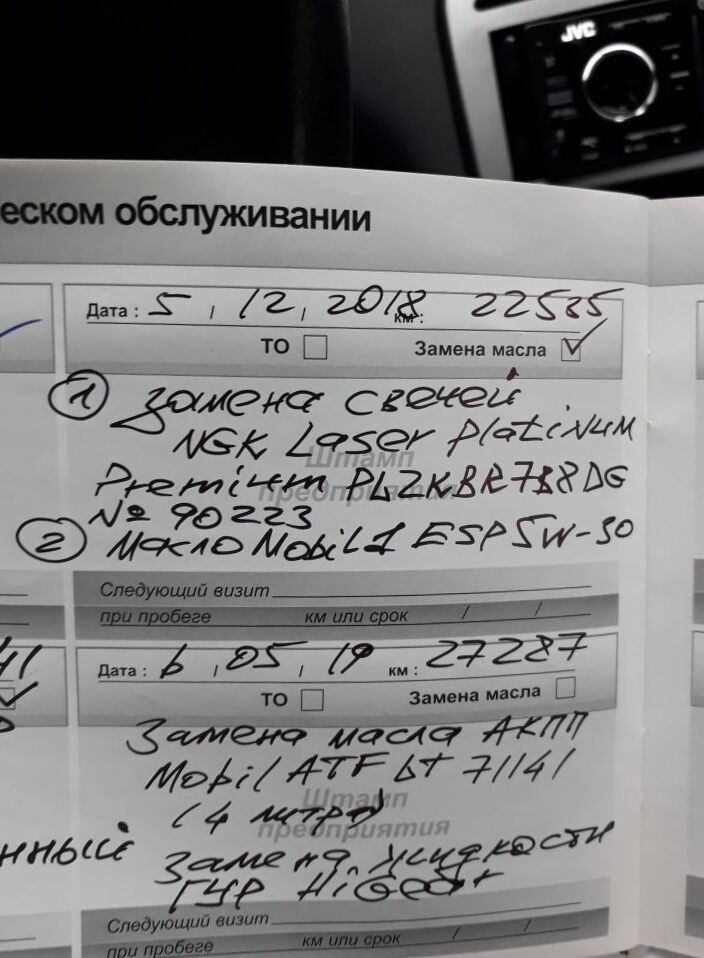 JVC
еском обслуживании
Дата : 5, 12, 2018 км : 22585
ТО Замена масла
1 Замена свечей
NGK Laser Platinum
Штамп
Premium PLZKBR7B8DG
предприятия
№ 90223
2 Масло Mobil 1 ESP 5W-30
Следующий визит
при пробеге км или срок / /
Дата : 6, 05, 19 км : 27287
ТО Замена масла
Замена масла АКПП
Mobil ATF LT 71141
Штамп
(4 литра)
предприятия
нный Замена жидкости
ГУР HiGear
Следующий визит
при пробеге км или срок / /